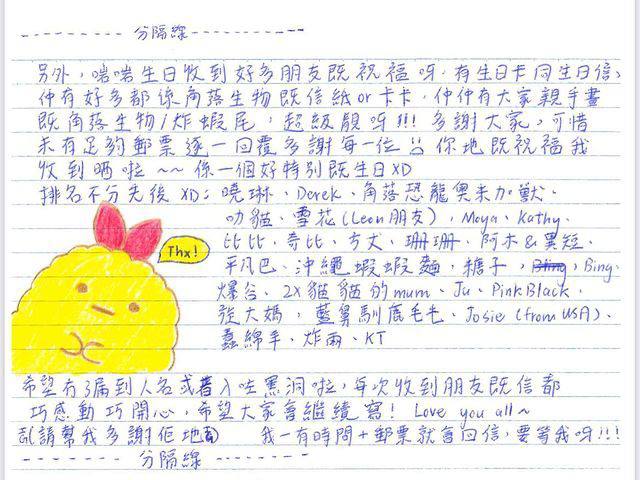 --------- 分隔線-----------
另外，啱啱生日收到好多朋友既祝福呀，有生日卡同生日信、
仲有好多都係角落生物既信紙or卡卡，仲仲有大家親手畫
既角落生物/炸蝦尾，超級靚呀!!! 多謝大家，可惜
未有足夠郵票逐一回覆多謝每一位 你地既祝福我
收到晒啦~~ 係一個好特別既生日XD
排名不分先後 XD: 曉琳、Derek、角落恐龍奧未加獸、
叻貓、雪花(Leon朋友)，Moya、Kathy、
比比、奇比、方丈、珊珊、阿木&異短、
Thx!
平凡巴、沖繩蝦蝦麵，糖子，Bing、
爆谷、2X貓貓的mum、Ju、PinkBlack、
強大媽，藍舅馴鹿毛毛、Josie (from USA)、
蠢綿羊、炸雨、KT
希望冇漏到人名或者入咗黑洞啦，每次收到朋友既信都
巧感動巧開心，希望大家會繼續寫! Love you all~
請幫我多謝佢地 我一有時間+郵票就會回信，要等我呀!!!
-------- 分隔線 ---------